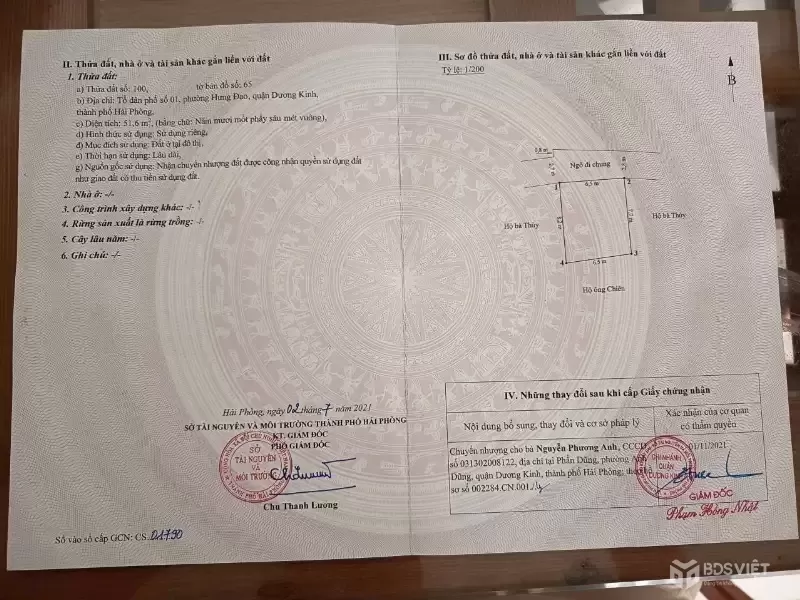 II. Thửa đất, nhà ở và tài sản khác gắn liền với đất
1. Thửa đất:
a) Thửa đất số: 100, tờ bản đồ số: 65.
b) Địa chỉ: Tổ dân phố số 01, phường Hưng Đạo, quận Dương Kinh,
thành phố Hải Phòng,
c) Diện tích: 51,6 m², (bằng chữ: Năm mươi mốt phẩy sáu mét vuông),
d) Hình thức sử dụng: Sử dụng riêng,
đ) Mục đích sử dụng: Đất ở tại đô thị,
e) Thời hạn sử dụng: Lâu dài,
g) Nguồn gốc sử dụng: Nhận chuyển nhượng đất được công nhận quyền sử dụng đất
như giao đất có thu tiền sử dụng đất.
2. Nhà ở: -/-
3. Công trình xây dựng khác: -/-
4. Rừng sản xuất là rừng trồng: -/-
5. Cây lâu năm: -/-
6. Ghi chú: -/-
Hải Phòng, ngày 02 tháng 7 năm 2021
SỞ TÀI NGUYÊN VÀ MÔI TRƯỜNG THÀNH PHỐ HẢI PHÒNG
KT. GIÁM ĐỐC
PHÓ GIÁM ĐỐC
SỞ
TÀI NGUYÊN
VÀ
MÔI TRƯỜNG
Chu Thanh Lương
Số vào sổ cấp GCN: CS 01790
III. Sơ đồ thửa đất, nhà ở và tài sản khác gắn liền với đất
Tỷ lệ: 1/200
B
Ngõ đi chung
1
2
6,5 m
Hộ bà Thúy
Hộ bà Thúy
4
6,5 m
3
Hộ ông Chiến
IV. Những thay đổi sau khi cấp Giấy chứng nhận
Nội dung bổ sung, thay đổi và cơ sở pháp lý
Xác nhận của cơ quan
có thẩm quyền
Chuyển nhượng cho bà Nguyễn Phương Anh, CCCD
số 031302008122, địa chỉ tại Phấn Dũng, phường Anh
Dũng, quận Dương Kinh, thành phố Hải Phòng; theo hồ
sơ số 002284.CN.001
01/11/2021
CHI NHÁNH
QUẬN
DƯƠNG KINH
GIÁM ĐỐC
Phạm Hồng Nhật
BDSVIỆT